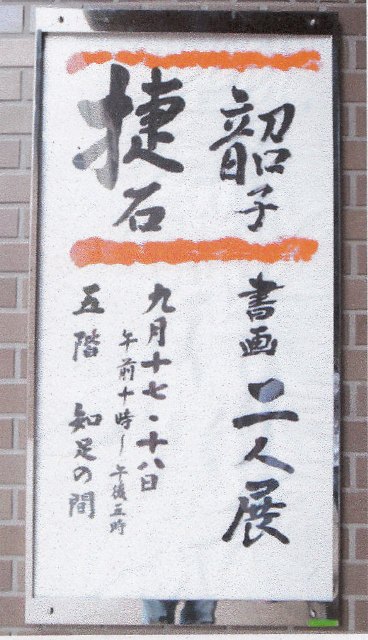 韶子
捷石
書画二人展
九月十七・十八日
午前十時〜午後五時
五階 知足の間